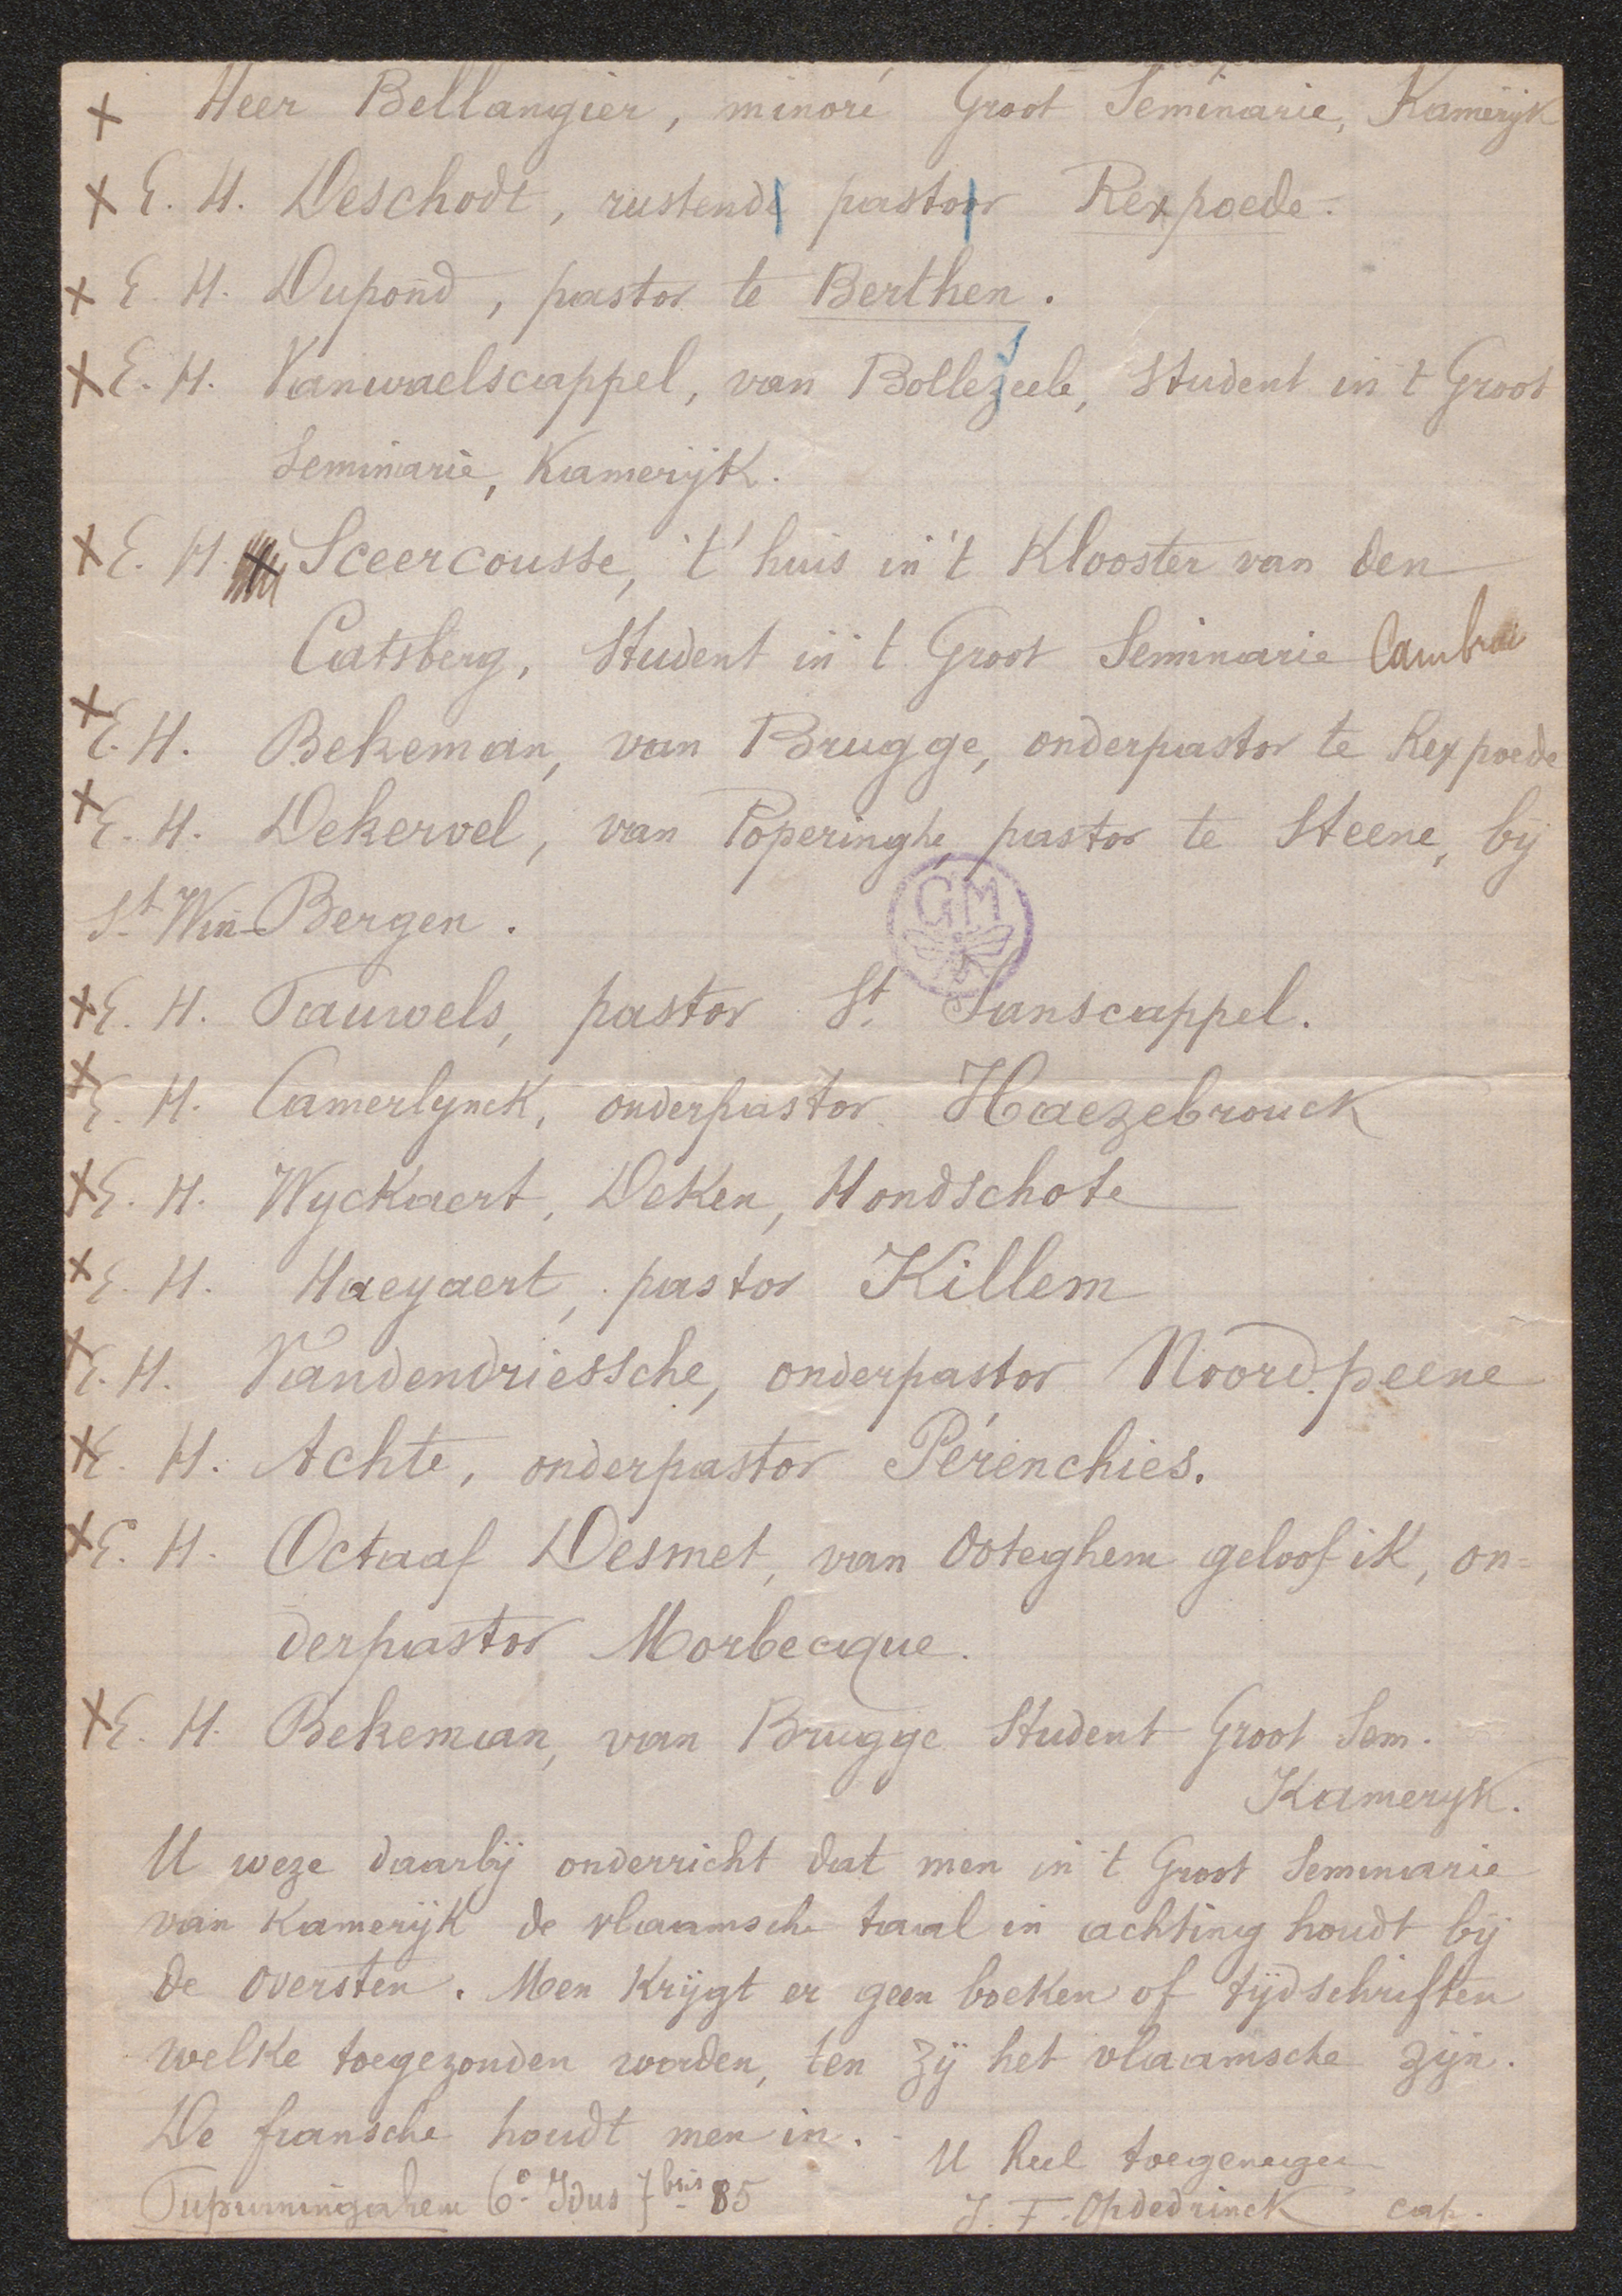 x Heer Bellangier, minoré Groot Seminarie, Kamerijk
x E. H. Deschodt, rustende pastoor Rexpoede.
x E. H. Dupond, pastor te Berthen.
x E. H. Vanwaelscappel, van Bollezeele, Student in 't Groot
Seminarie, Kamerijk.
x E. H. Sceercousse, 't huis in 't Klooster van den
Catsberg, Student in 't Groot Seminarie Cambrai
x E. H. Bekeman, van Brugge, onderpastor te Rexpoede
x E. H. Dekervel, van Poperinghe, pastor te Steene, bij
St Win-Bergen.
GM
x E. H. Pauwels, pastor St. Janscappel.
x E. H. Camerlynck, onderpastor Haezebrouck
x E. H. Wyckaert, Deken, Hondschote
x E. H. Haeyaert, pastor Killem
x E. H. Vandendriessche, onderpastor Noord.peene
x E. H. Achte, onderpastor Pérenchies.
x E. H. Octaaf Desmet, van Ooteghem geloof ik, on=
derpastor Morbecque.
x E. H. Bekeman, van Brugge Student Groot Sem.
Kameryk.
U weze daarbij onderricht dat men in 't Groot Seminarie
van Kamerijk de vlaamsche taal in achting houdt bij
de oversten. Men Krijgt er geen boeken of tijdschriften
welke toegezonden worden, ten zij het vlaamsche zijn.
De fransche houdt men in.
U heel toegenegen
6° Idus 7bris 85
J. F. Opdedrinck cap.